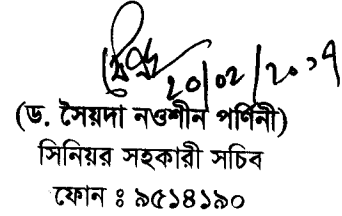 20/02/2017
(ড. সৈয়দা নওশীন পর্ণিনী)
সিনিয়র সহকারী সচিব
ফোন ঃ ৯৫১৪১৯০